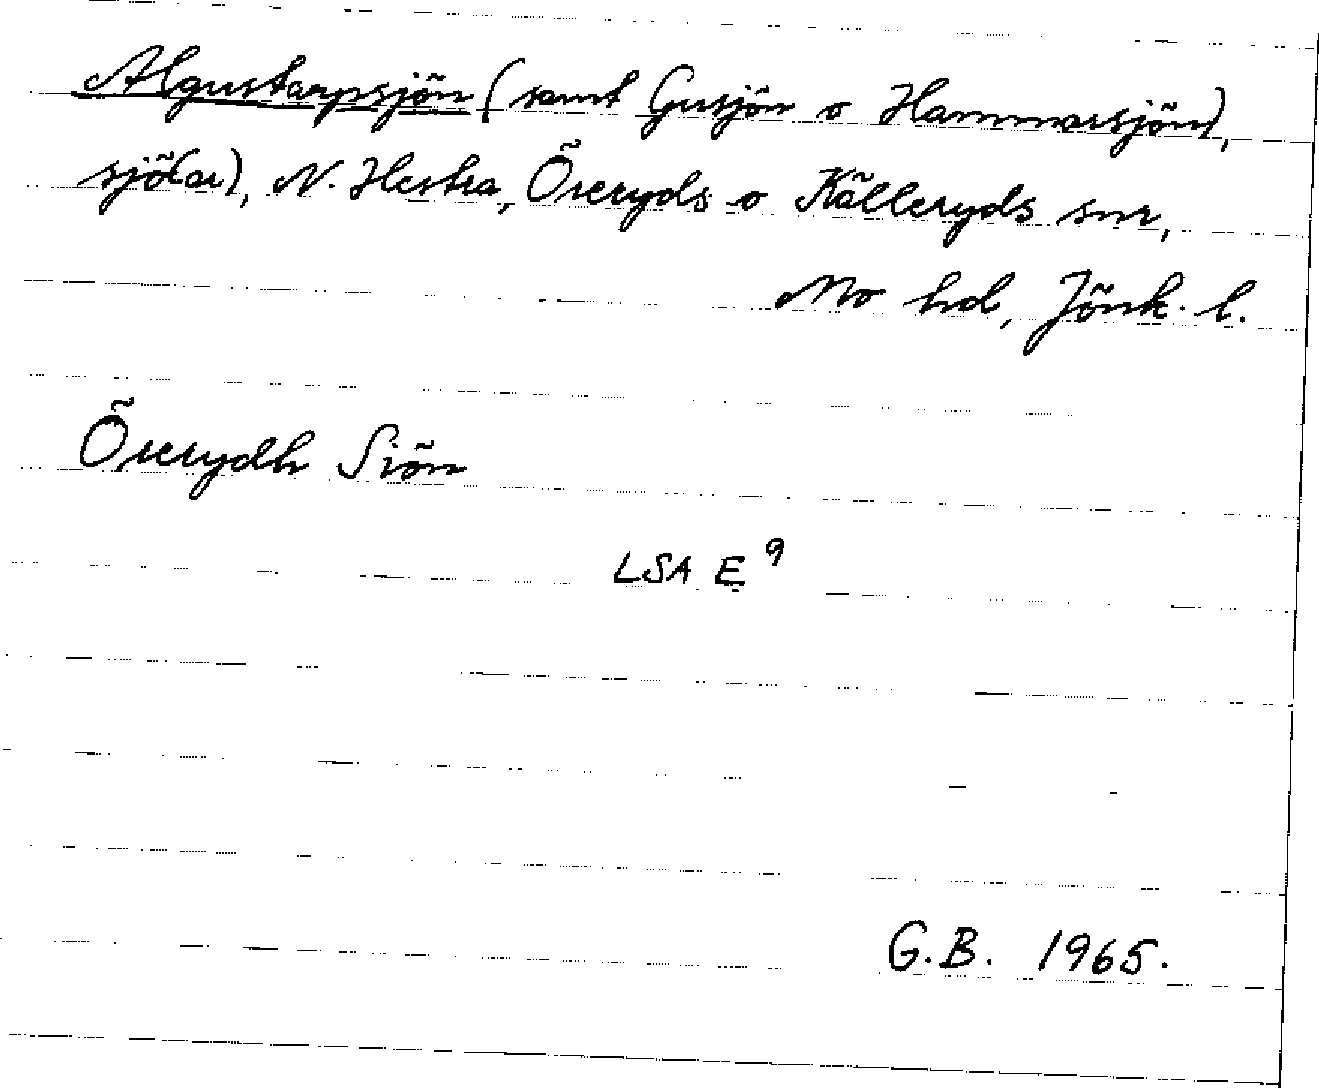 Algustarpsjön (samt Gusjön o Hammarsjön),
sjö(ar), N. Hestra, Öreryds o Källeryds snr,
Mo hd, Jönk. l.
Örerydh Siön
LSA E 9
G.B. 1965.